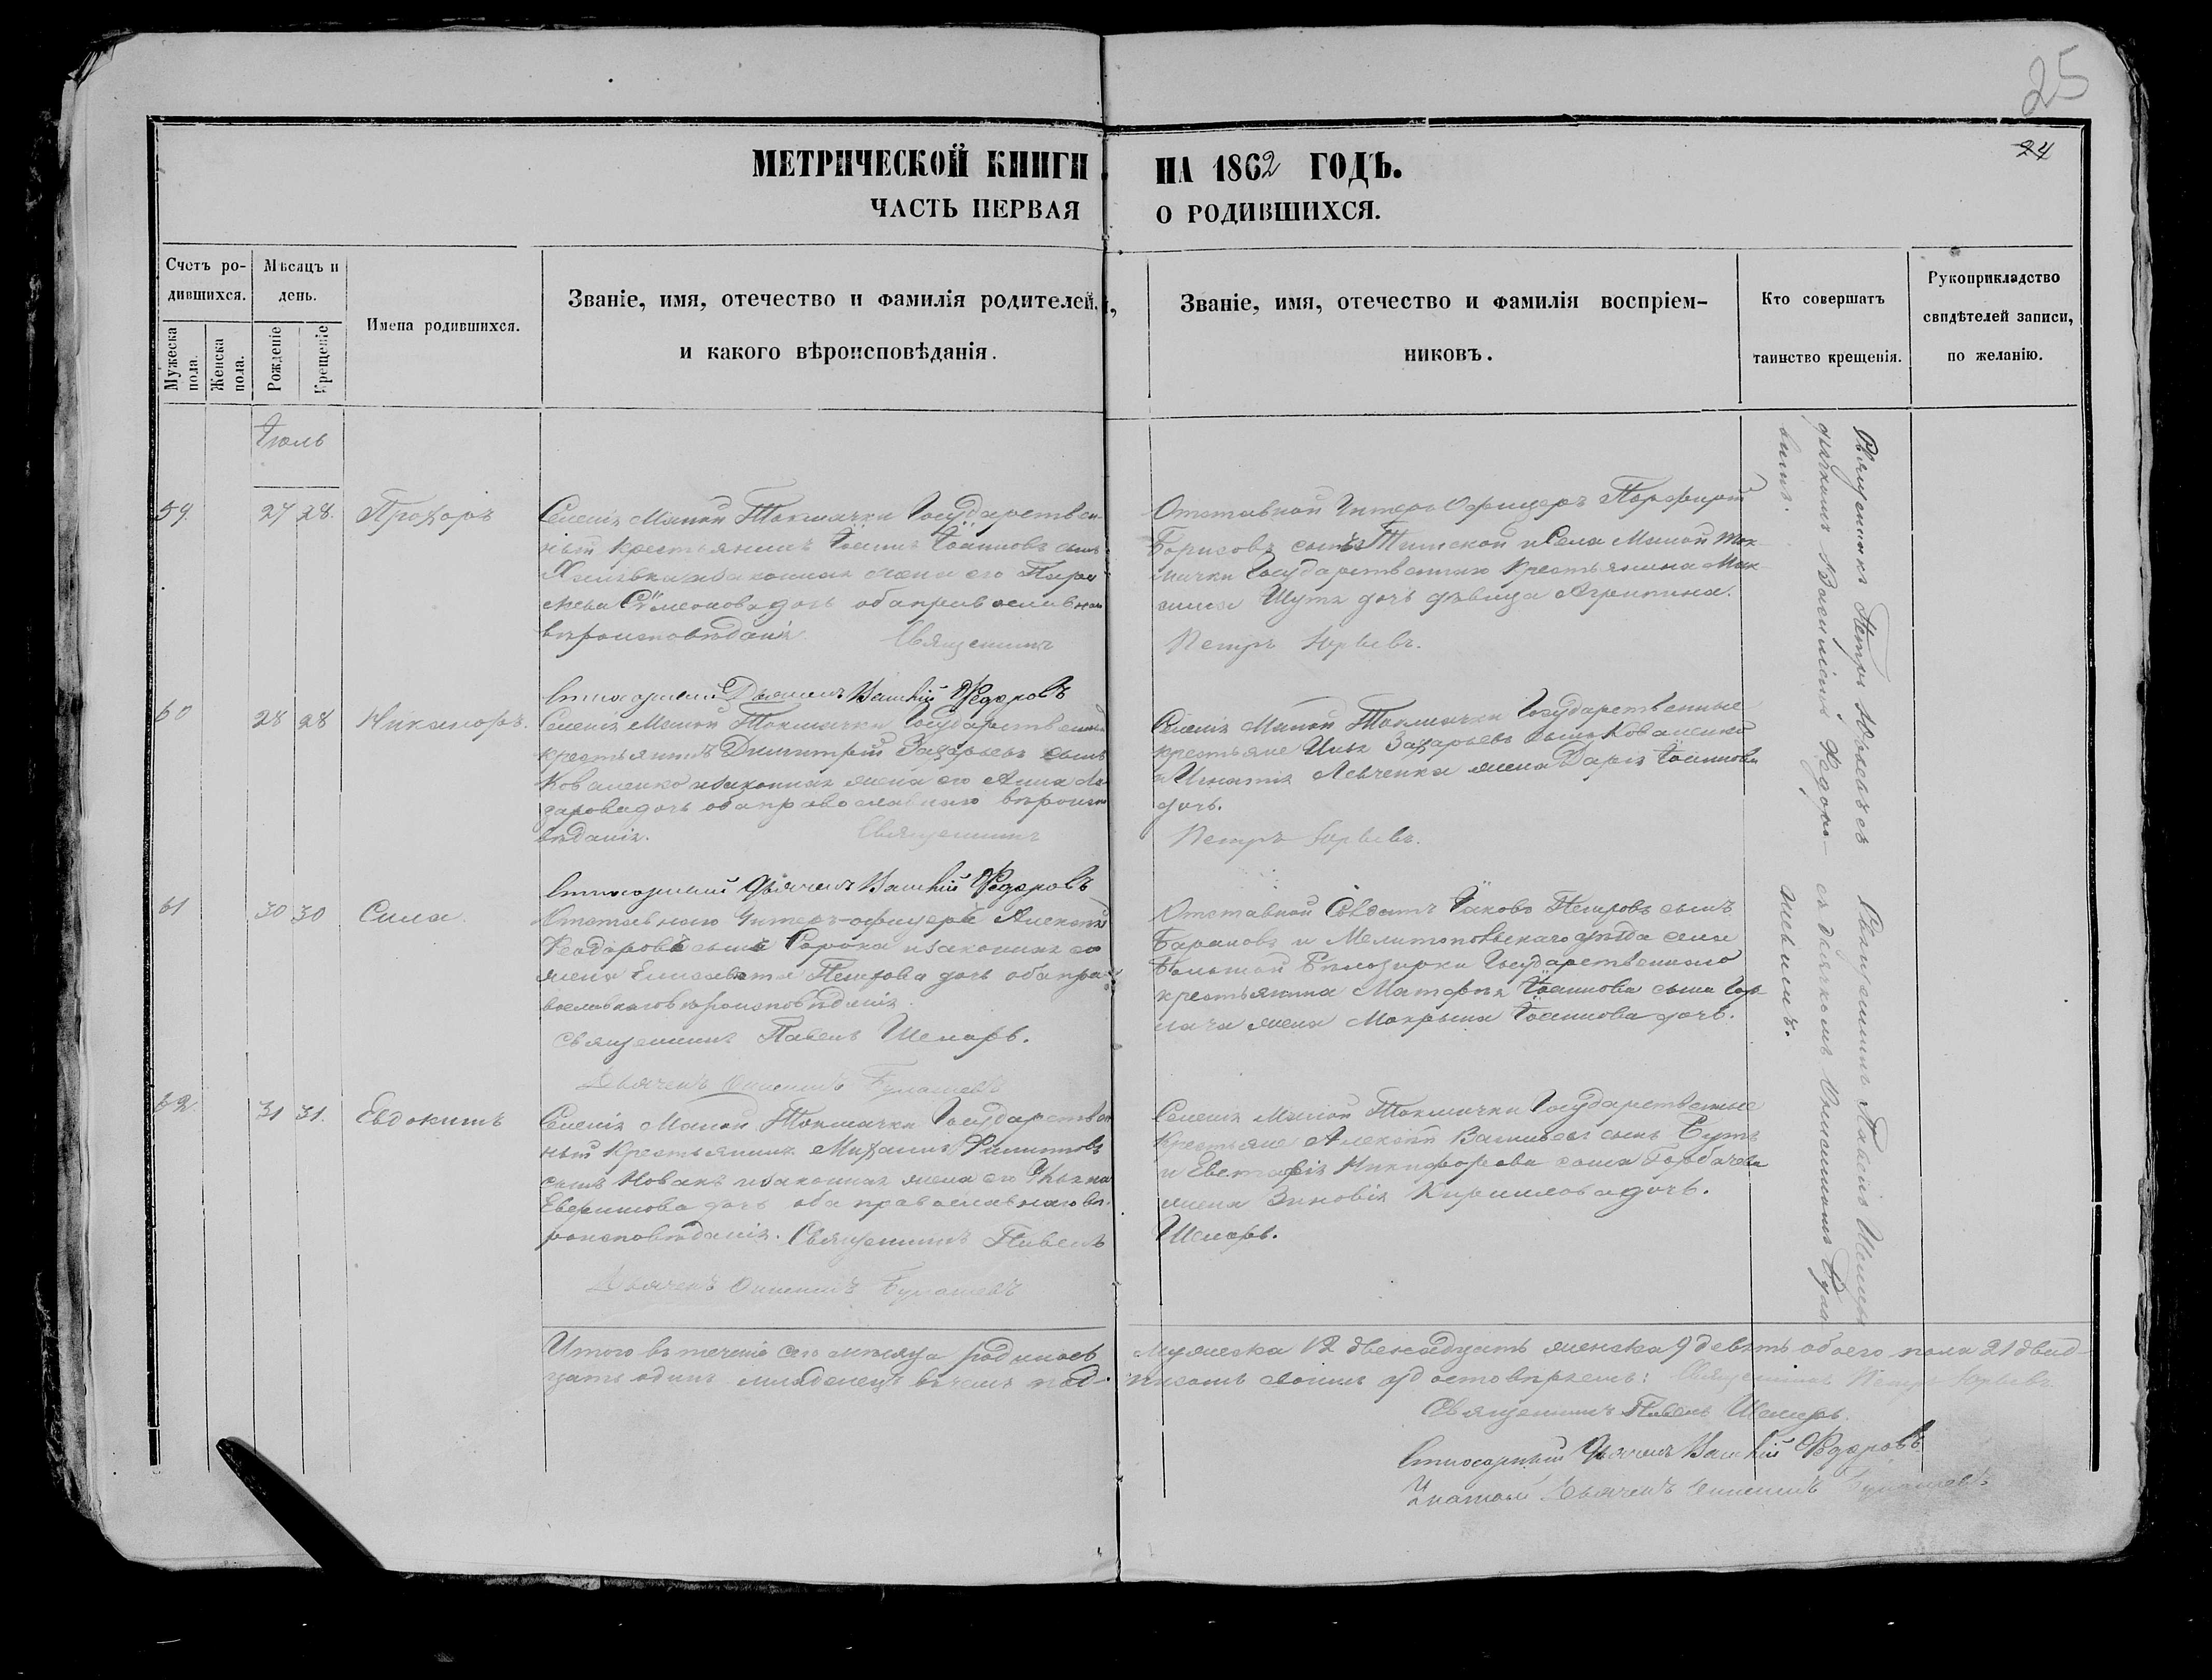 25
24
МЕТРИЧЕСКОЙ КНИГИ НА 1862 ГОДЪ.
ЧАСТЬ ПЕРВАЯ О РОДИВШИХСЯ.
Счетъ ро-
дившихся.
Мужеска пола.
Женска пола.
Мѣсяцъ и
день.
Рожденіе
Крещеніе
Имена родившихся.
Званіе, имя, отечество и фамилія родителей,
и какого вѣроисповѣданія.
Званіе, имя, отечество и фамилія воспріем-
никовъ.
Кто совершатъ
таинство крещенія.
Рукоприкладство
свидѣтелей записи,
по желанію.
Іюль
59. 27 28. Прохоръ
Селенія Малой Токмачки Государствен-
ный крестьянинъ Іоаннъ Іоанновъ сынъ
законная жена его Параскева
Сѵмеонова дочь оба православнаго
вѣроисповѣданія. Священникъ
Петръ Юрьевъ.
Отставной Унтеръ Офицеръ Порфирій
Борисовъ сынъ и Села Малой Ток-
мачки Государственнаго крестьянина Мак-
сима Шута дочь дѣвица Агрипина.
Священникъ Петръ Юрьевъ съ
дьячкомъ Василіемъ Федоро-
вымъ.
Стихарный Дьячекъ Василій Федоровъ
60 28 28 Никаноръ.
Селенія Малой Токмачки Государственный
крестьянинъ Димитрій Захарьевъ сынъ
Коваленко и законная жена его Анна Ла-
зарова дочь оба православнаго вѣроиспо-
вѣданія. Священникъ
Петръ Юрьевъ.
Селенія Малой Токмачки Государственные
крестьяне Илья Захарьевъ сынъ Коваленко
и Игнатія Левченка жена Дарія Іоаннова
дочь.
Стихарный Дьячекъ Василій Федоровъ
61 30 30 Сила.
Отставнаго Унтеръ-офицера Алексѣя
Феодорова сына Сорока и законная его
жена Елисавета Петрова дочь оба пра-
вославнаго вѣроисповѣданія.
Священникъ Павелъ Шемарь.
Дьячекъ Булашевъ
Отставной Солдатъ Іаковъ Петровъ сынъ
Барановъ и Мелитопольскаго уѣзда села
Большой Бѣлозирки Государственнаго
крестьянина Матфея Іоаннова сына Гор-
жена Макрына Іоаннова дочь.
Священникъ Павелъ Шемарь
съ дьячкомъ Була-
шевымъ.
62 31 31. Евдокимъ
Селенія Малой Токмачки Государствен-
ный крестьянинъ Михаилъ Филиповъ
сынъ Новакъ и законная жена его
дочь оба православнаго вѣ-
роисповѣданія. Священникъ Павелъ
Шемарь.
Дьячекъ Булашевъ
Селенія Малой Токмачки Государственные
крестьяне Алексѣй Васильевъ сынъ
и Евстафія Никифорова сына Горбачева
жена Зиновія Кирилова дочь.
Итого въ теченіе сего мѣсяца родилось мужеска 12 двенадцать женска 9 девять обоего пола 21 двад-
цать одинъ младенецъ въ чемъ под-писомъ своимъ удостовѣряемъ: Священникъ Петръ Юрьевъ
Священникъ Павелъ Шемарь.
Стихарный Дьячекъ Василій Федоровъ
Дьячекъ Булашевъ